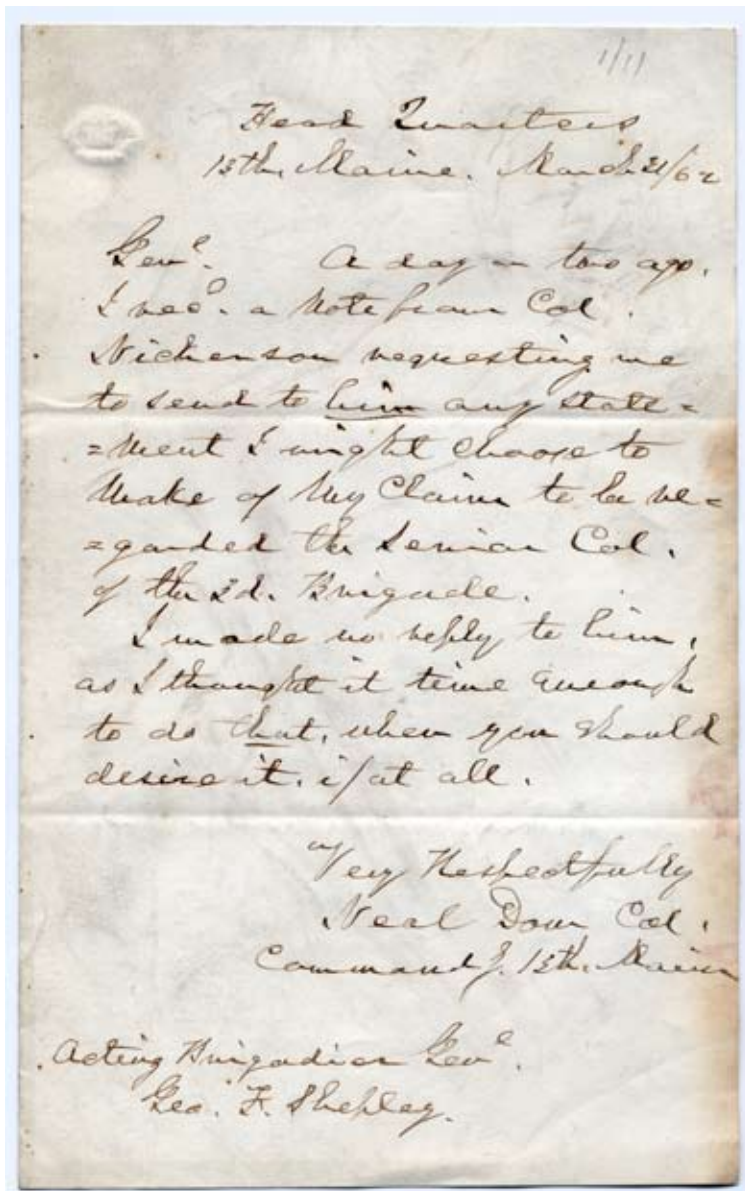 1/11
Head Quarters
13th. Maine. March 21/62
Genl. A day or two ago.
I recd. a Note from Col.
Nickerson requesting me
to send to him any state=
=ment I might choose to
Make of My Claim to be re=
=garded the Senior Col.
of the 3d. Brigade.
I made no reply to him,
as I thought it time enough
to do that, when you should
desire it, if at all.
Very Respectfully
Neal Dow Col.
Commandg. 13th. Maine
Acting Brigadier Genl.
Geo. F. Shepley.